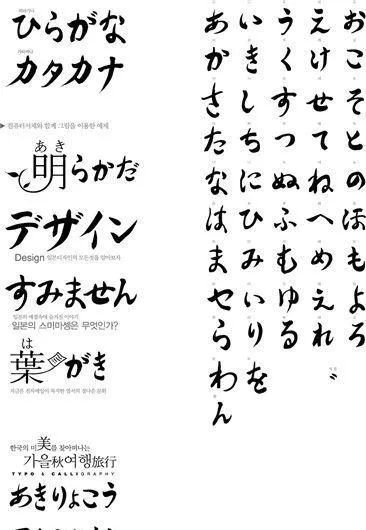 히라가나
ひらがな
가타카나
カタカナ
▶ 컴퓨터서체와 함께 그림을 이용한 예제
あき
明らかだ
デザイン
Design 일본디자인의 모든것을 알아보자
すみません
일본의 예절속에 숨겨진 이야기
일본의 스미마셍은 무엇인가?
は
葉がき
지금은 전자메일이 차지한 엽서의
한국의 미美를 찾아떠나는
가을秋여행旅行
TYPO & CALLIGRAPHY
あきりょこう
あいうえお
かきくけこ
さしすせそ
たちつてと
なにぬねの
はひふへほ
まみむめも
やいゆえよ
らりるれろ
わを゛
ん